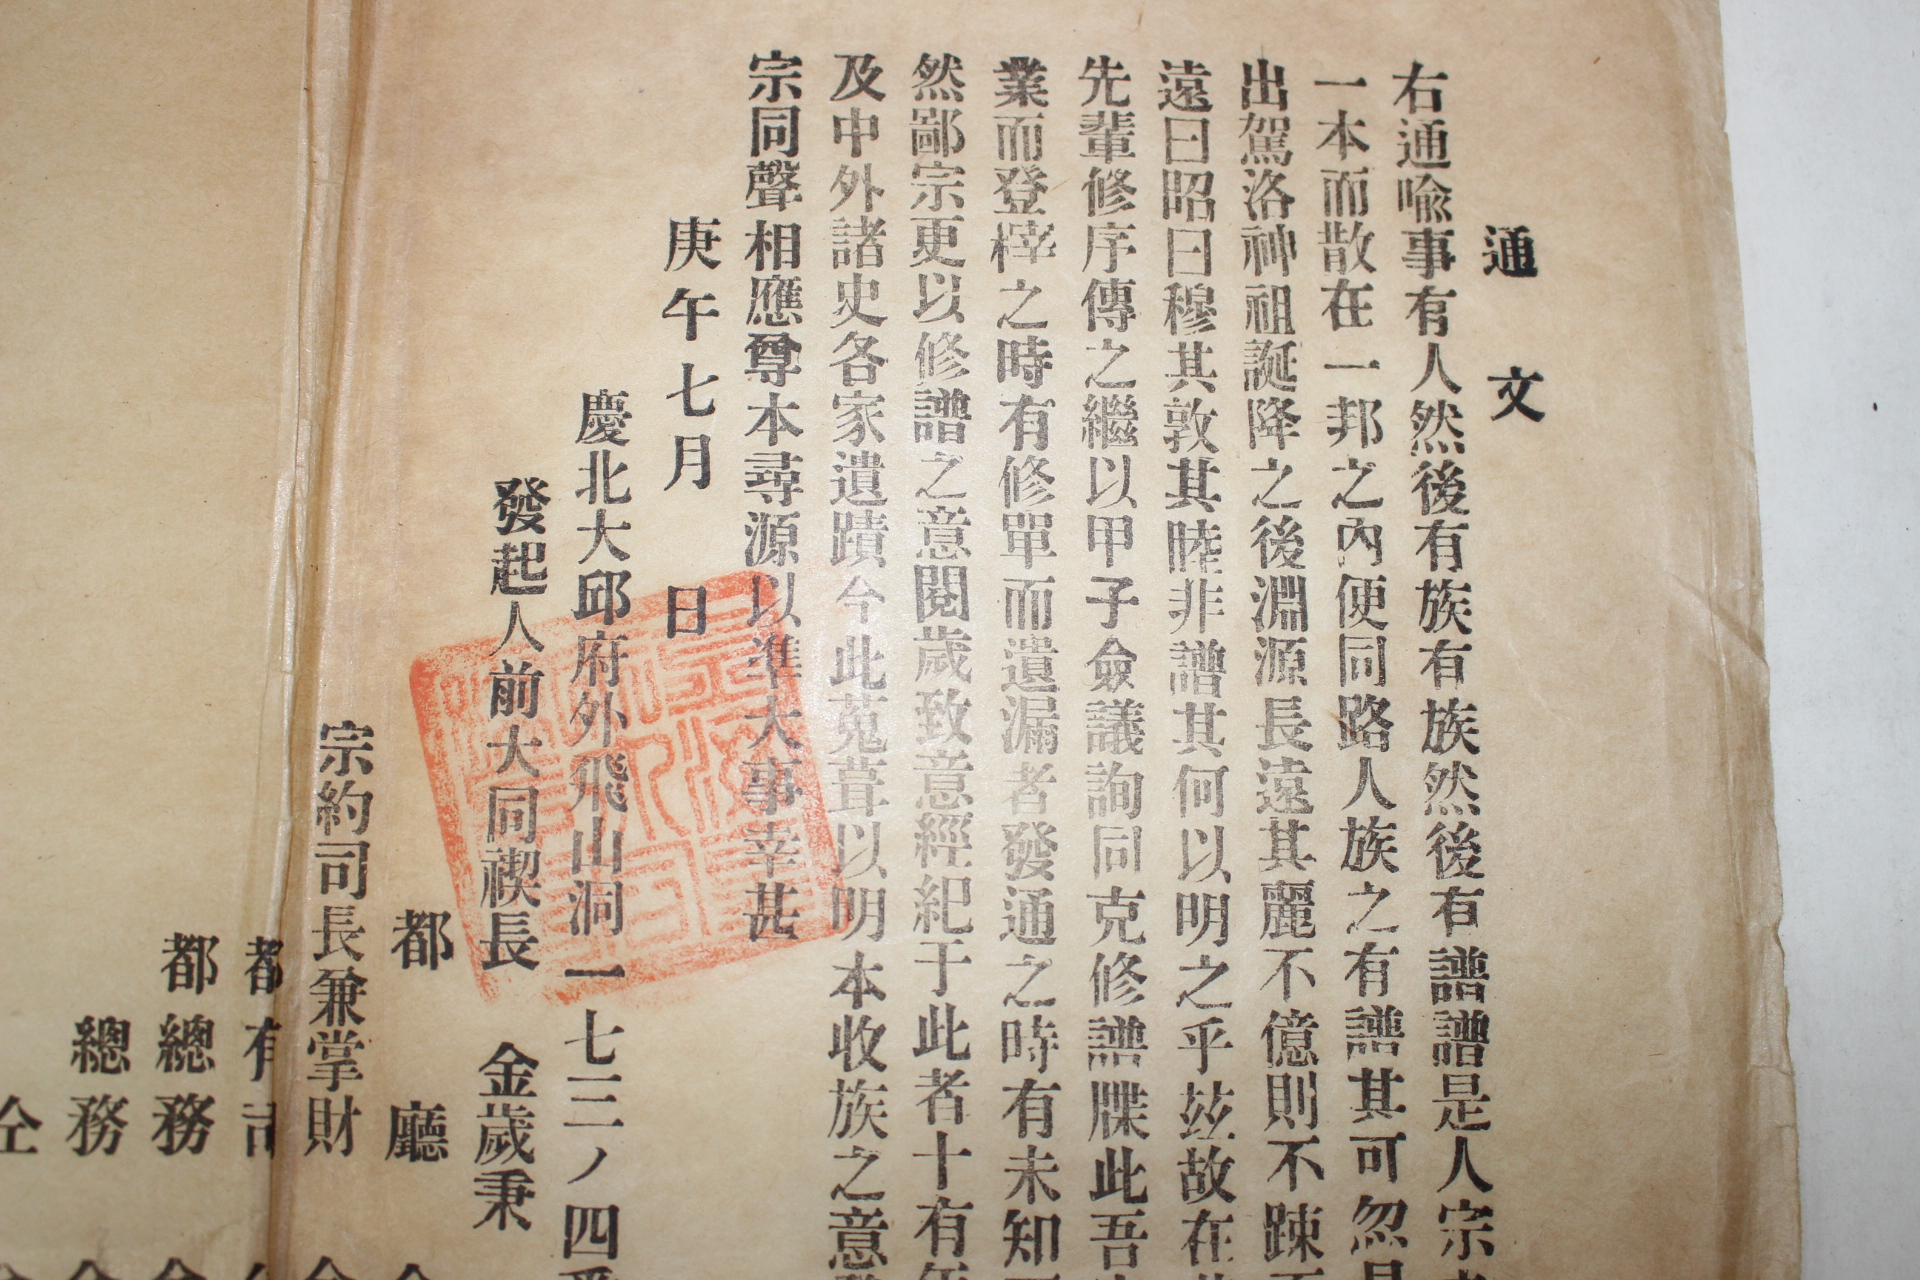 通文
右通喩事有人然後有族有族然後有譜譜是人宗
一本而散在一邦之內便同路人族之有譜其可忽
出駕洛神祖誕降之後淵源長遠其麗不億則不踈
遠曰昭曰穆其敦其睦非譜其何以明之乎玆故在
先輩修序傳之繼以甲子僉議詢同克修譜牒此吾
業而登梓之時有修單而遺漏者發通之時有未知
然鄙宗更以修譜之意閱歲致意經紀于此者十有年
及中外諸史各家遺蹟今此蒐葺以明本收族之意
宗同聲相應尊本尋源以準大事幸甚
庚午七月 日
慶北大邱府外飛山洞一七三ノ四
發起人前大同禊長 金歲秉
都廳
宗約司長兼掌財
都有司
都總務
總務
仝